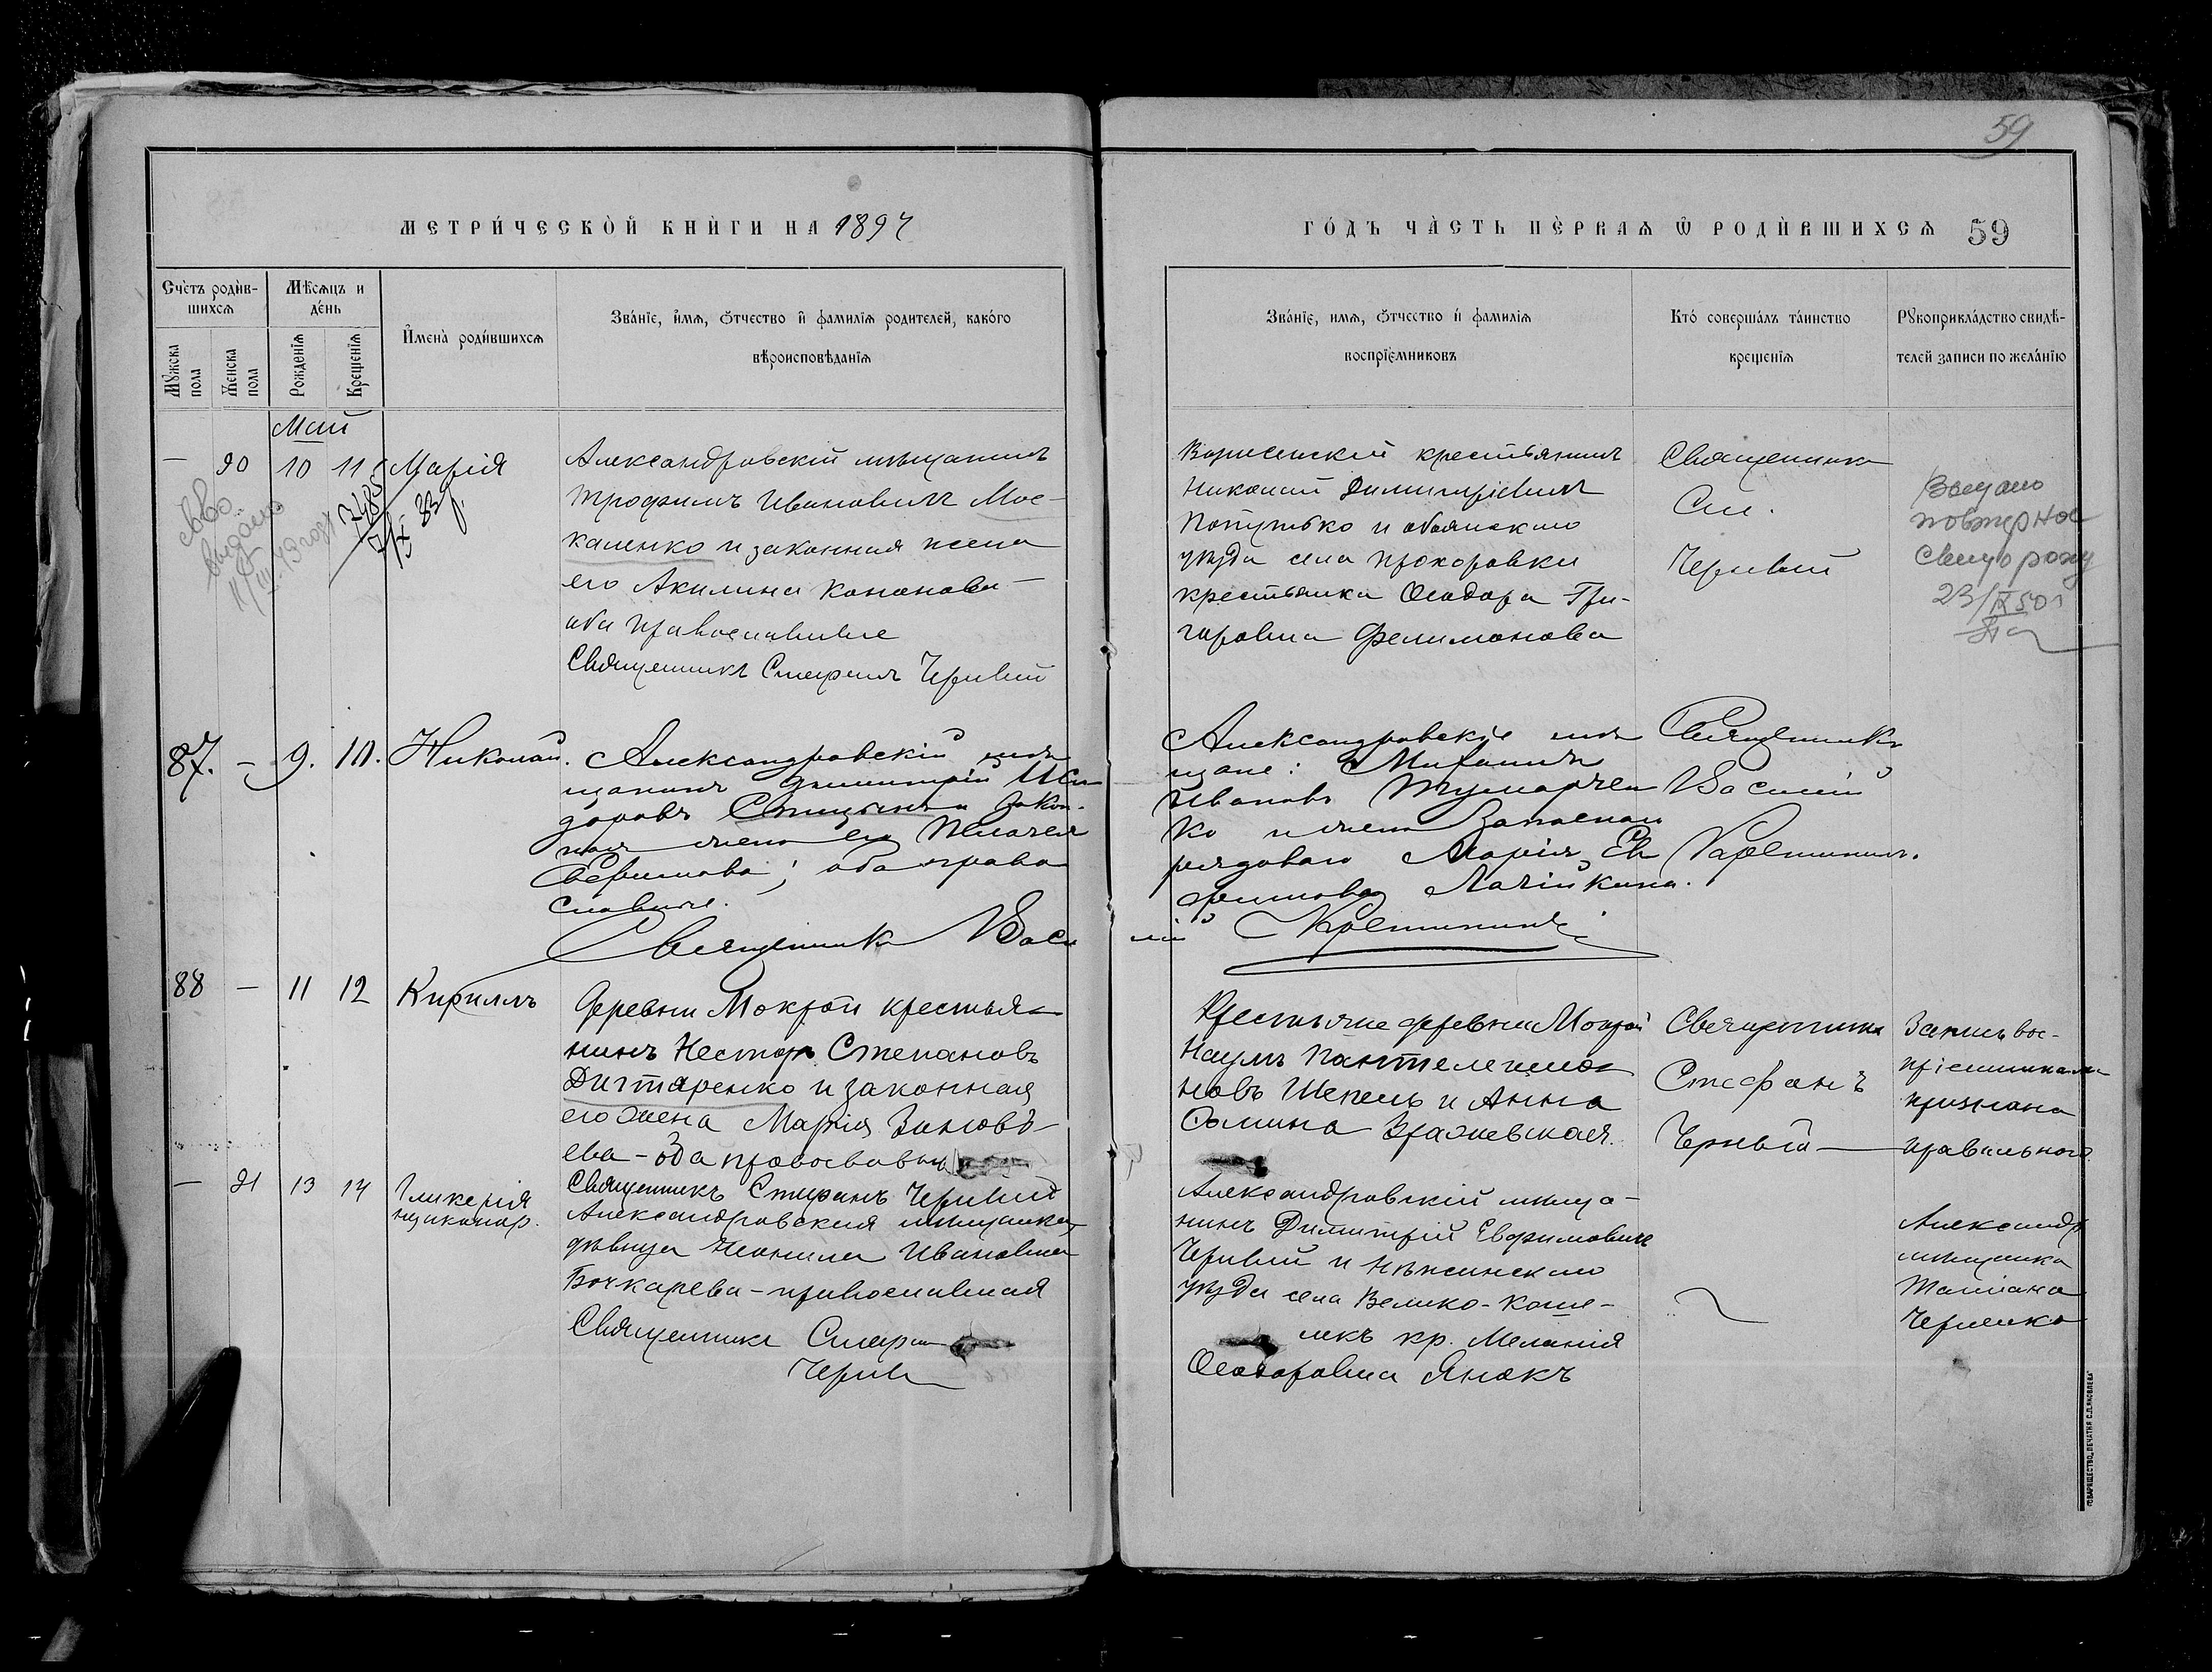 59
МЕТРИ́ЧЕСКОЙ КНИ́ГИ НА 1897
ГО́ДЪ ЧА́СТЬ ПЕ́РВАѦ Ѡ РОДИ́ВШИХСѦ 59
Сче́тъ роди́в-
шихсѧ
Мꙋжска
пола
Женска
пола
Мѣ́сѧцъ и
де́нь
Рожденїѧ
Крещенїѧ
И҆мена̀ роди́вшихсѧ
Зва́нїе, и҆́мѧ, ѻ҆́тчество и҆ фамилїѧ родителей, како́го
вѣроисповѣ́данїѧ
Зва́нїе, имѧ, ѻ҆́тчество и҆ фамилїѧ
воспрїе́мниковъ
Кто́ соверша́лъ та́инство
креще́нїѧ
Рꙋкоприкла́дство свидѣ́-
телей записи по жела́нїю
Май
— 90 10 11 Марія
выдано
7485
Александровскій мѣщанинъ
Трофимъ Ивановичъ Мос-
каленко и законная жена
его Акилина Кононова
оба православные
Священникъ Стефанъ Червый
крестьянинъ
Николай Димитріевичъ
Попутько и обоянскаго
уѣзда села Прохоровки
крестьянка Ѳеодора Гри-
горовна Филимонова
Священникъ
Ст.
Червый
Выдано
повторное
свид о рожд
23/IX 50
87. — 9. 10. Николай.
Александровскій мѣ
щанинъ Димитрій Иси
доровъ и закон-
ная жена его Пелагея
Евфимова; оба право
славные.
Священникъ Васи
лій
Александровскіе мѣ
щане: Михаилъ
Ивановъ
ко и жена запаснаго
рядоваго Марія Ев
фимова
Священникъ
Василій
88 — 11 12 Кириллъ
Деревни Мокрой крестья-
нинъ Несторъ Степановъ
Дигтаренко и законная
его жена Марія Зиновь-
ева — оба православные
Священникъ Стефанъ Червый
Крестьяне деревни Мокрой
Наумъ Пантелеимо-
новъ Шепель и Анна
Ѳомина
Священникъ
Стефанъ
Червый —
Запись вос-
пріемниками
признана
правильною
— 91 13 14 Гликерія
незаконор.
Александровская мѣщанка
дѣвица Неонила Ивановна
Бочкарева — православная
Священникъ Стефан
Черв
Александровскій мѣща-
нинъ Димитрій Евфимовичъ
Червый и Нѣжинскаго
уѣзда села Велико-Коше-
лекъ кр. Меланія
Ѳеодоровна Янокъ
Александр
мѣщанка
Татіана
Черненко
ТОВАРИЩЕСТВО „ПЕЧАТНЯ С.П.ЯКОВЛЕВА"